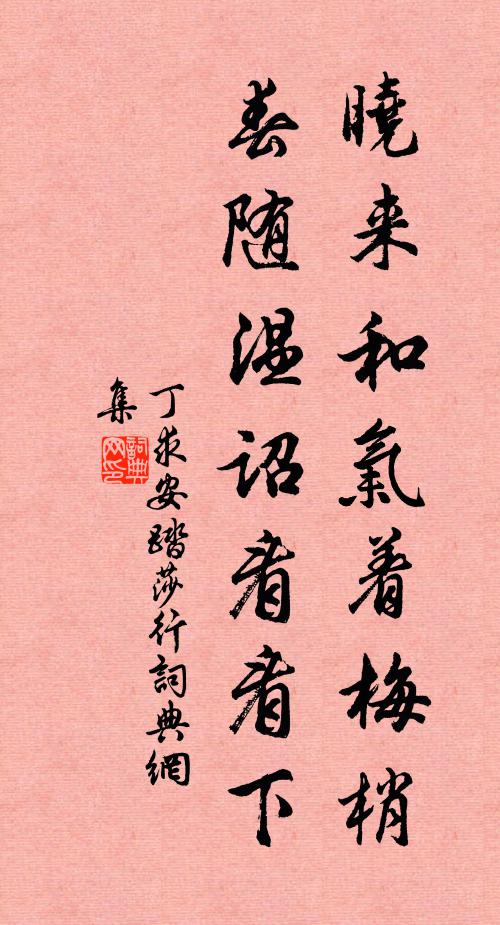 曉来和氣着梅梢
春随温詔看看下
丁求安踏莎行詞典網
集
詞典網印